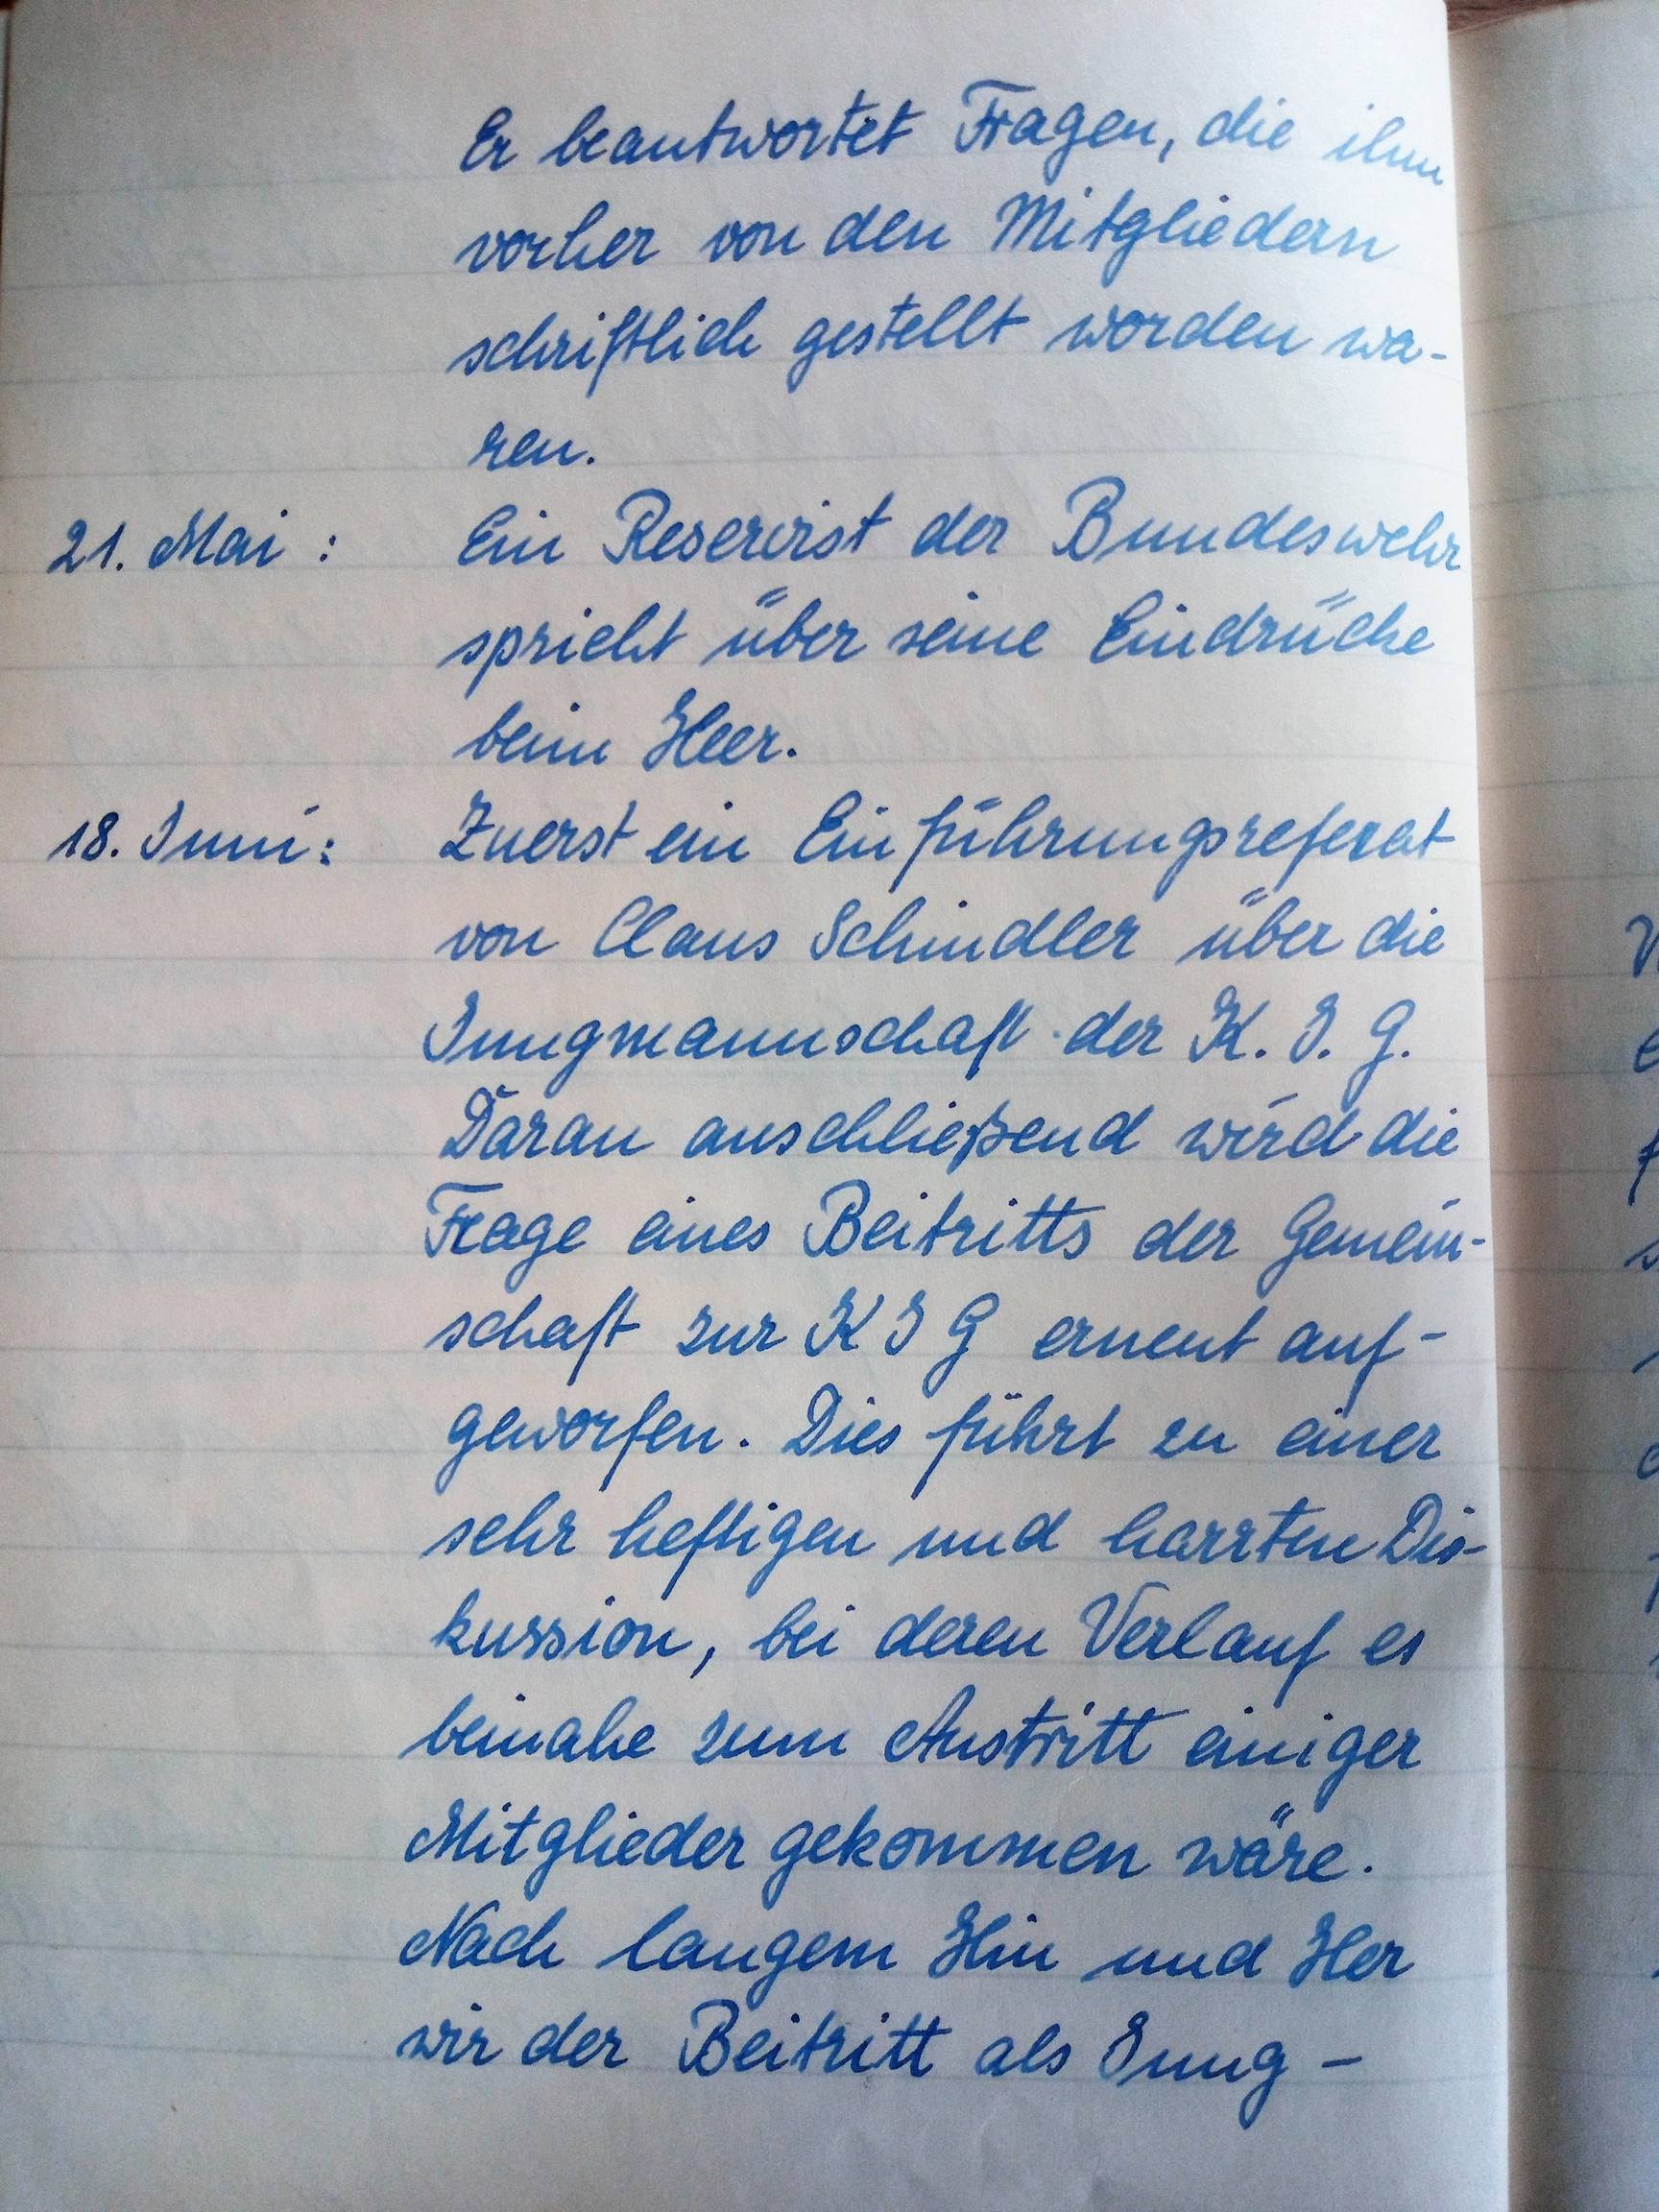 Er beantwortet Fragen, die ihm
vorher von den Mitgliedern
schriftlich gestellt worden wa-
ren.
21. Mai : Ein Reservist der Bundeswehr
spricht über seine Eindrücke
beim Heer.
18. Juni: Zuerst ein Einführungsreferat
von Claus Schindler über die
Jungmannschaft der K. J. G.
Daran anschließend wird die
Frage eines Beitritts der Gemein-
schaft zur K J G erneut auf-
geworfen. Dies führt zu einer
sehr heftigen und harrten Dis-
kussion, bei deren Verlauf es
beinahe zum Austritt einiger
Mitglieder gekommen wäre.
Nach langem Hin und Her
wir der Beitritt als Jung -